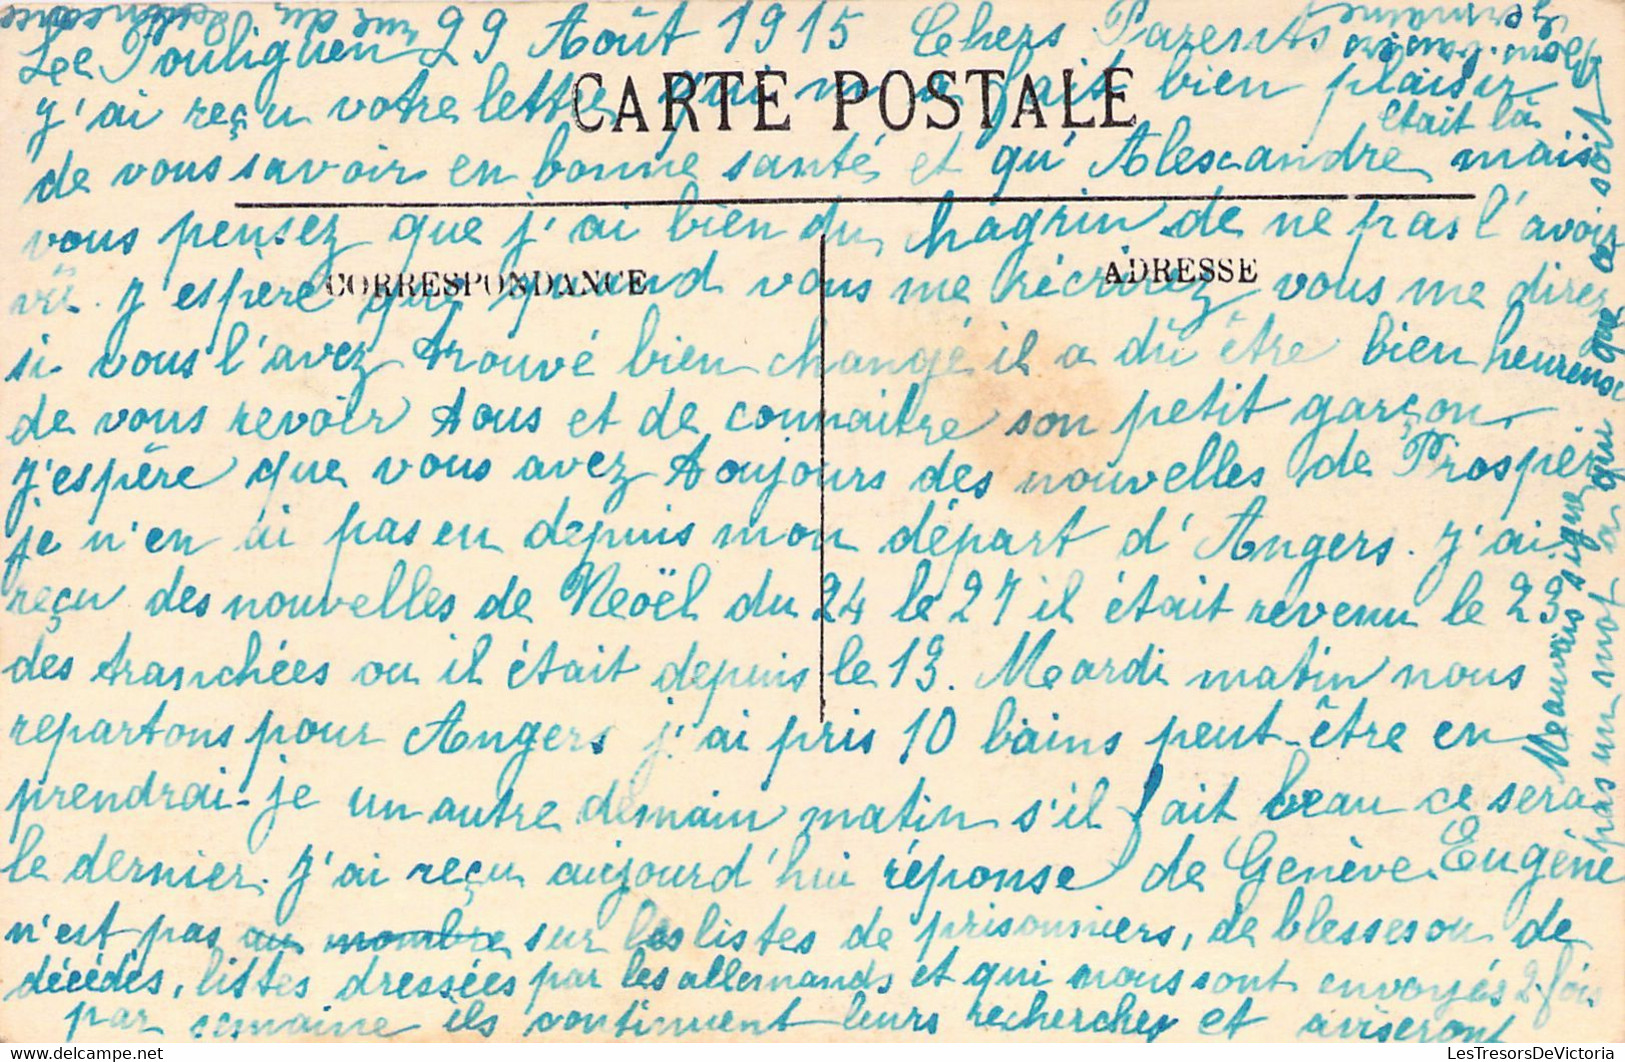 Le Pouliguen 29 Août 1915 Chers Parents
j'ai reçu votre lettre qui m'a fait bien plaisir
CARTE POSTALE
était là
de vous savoir en bonne santé et qu'Alexandre mais
vous pensez que j'ai bien du chagrin de ne pas l'avoir
vu. J'espère que quand vous me récrirez vous me direz
CORRESPONDANCE
ADRESSE
si vous l'avez trouvé bien changé il a dû être bien heureuse
de vous revoir tous et de connaitre son petit garçon
J'espère que vous avez toujours des nouvelles de Prosper
je n'en ai pas eu depuis mon départ d'Angers. J'ai
reçu des nouvelles de Noël du 24 le 21 il était revenu le 23
des tranchées ou il était depuis le 13. Mardi matin nous
repartons pour Angers j'ai pris 10 bains peut-être en
prendrai-je un autre demain matin s'il fait beau ce sera
le dernier. J'ai reçu aujourd'hui réponse de Genève. Eugéne
n'est pas au nombre sur les listes de prisonniers, de blesses ou de
décédés, listtes dressées par les allemands et qui nous sont envoyés 2 fois
par semaine ils continuent leurs recherches et aviseront
Mauvais signe
pas un mot à qui que ce soit
Germaine
LesTresorsDeVictoria
LesTresorsDeVictoria.com